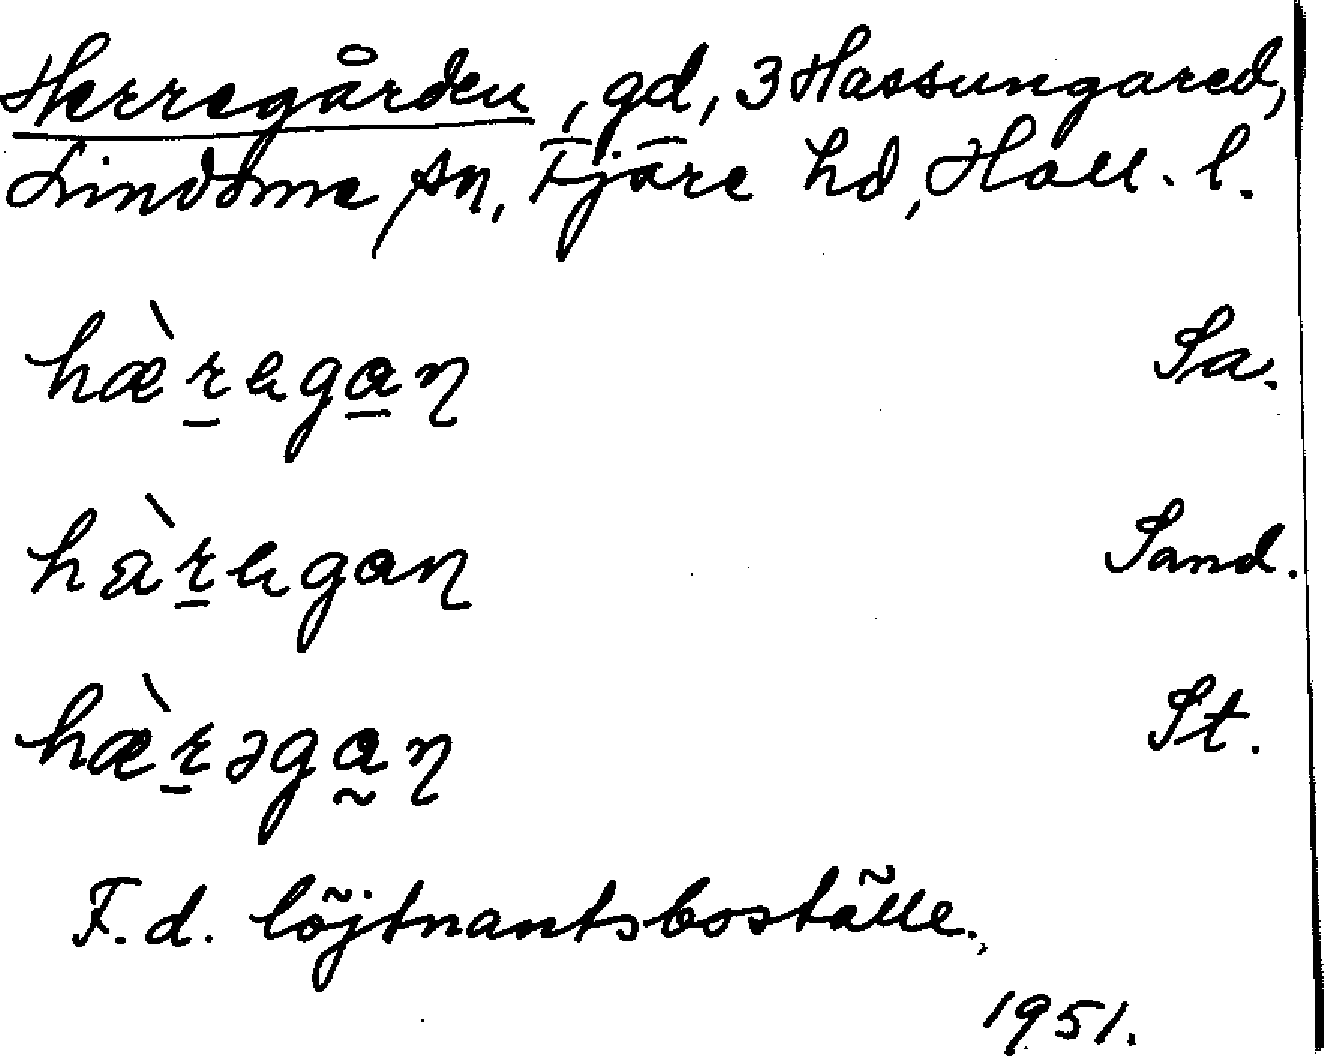 Herregården, gd, 3 Hassungared,
Lindome sn, Fjäre hd, Hall. l.
hæ̀r̠ega̠ɳ Sa.
hàr̠egaɳ Sand.
hæ̀r̠əga̰ɳ St.
F.d. löjtnantsboställe.
1951.